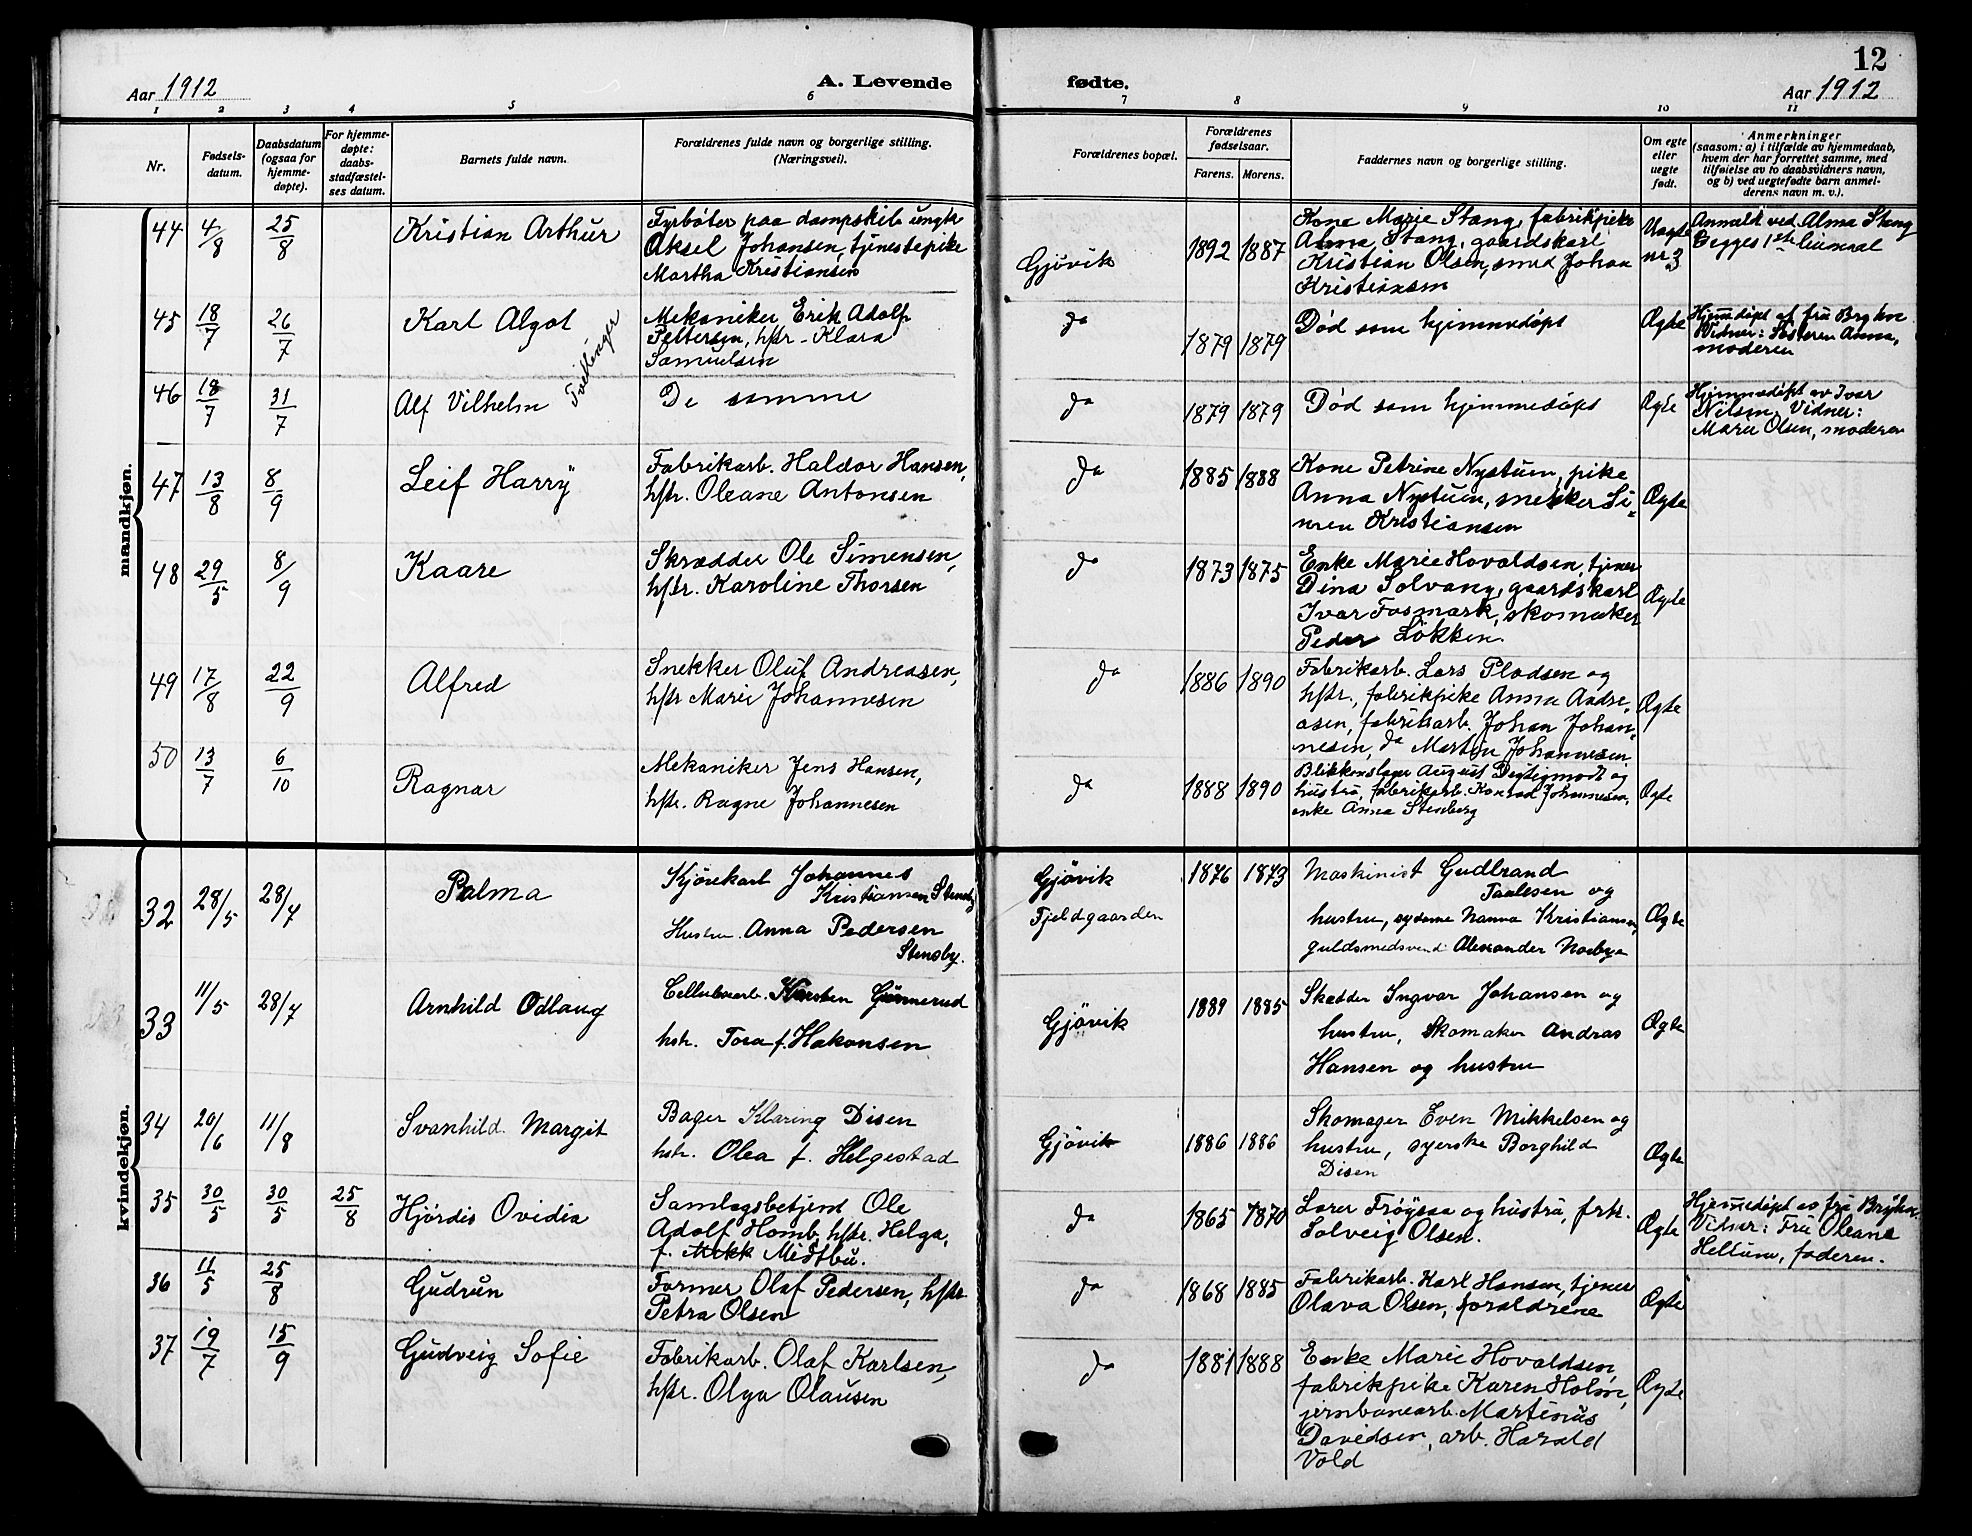 12
Aar 1912
A. Levende
fødte.
Aar 1912
1 2 3 4 5 6 7 8 9 10 11
Nr.
Fødsels-
datum.
Daabsdatum
(ogsaa for
hjemme-
døpte).
For hjemme-
døpte:
daabs-
stadfæstel-
ses datum.
Barnets fulde navn.
Forældrenes fulde navn og borgerlige stilling.
(Næringsvei).
Forældrenes bopæl.
Forældrenes
fødselsaar.
Farens. Morens.
Faddernes navn og borgerlige stilling.
Om egte
eller
uegte
født.
Anmerkninger
(saasom: a) i tilfælde av hjemmedaab,
hvem der har forrettet samme, med
tilføielse av to daabsvidners navn,
og b) ved uegtefødte barn anmel-
derens navn m. v.).
mandkjøn.
44 4/8 25/8 Kristian Arthur
Fyrbøter paa dampskib ungk
Aksel Johansen, tjenestepike
Martha Kristiansen
Gjøvik 1892 1887
Kone Marie Stang, fabrikpike
Alma Stang, gaardskarl
Kristian Olsen, smed Johan
Kristiansen
Uegte
nr 3
Anmeldt ved Alma Stang
Begges 1ste leiermaal
45 18/7 26/7 Karl Algot
Tvillinger
Mekaniker Erik Adolf
Pettersen, hstr. Klara
Samuelsen
da 1879 1879
Død som hjemmedøpt
Ægte
Hjemmedøpt af fru Bryhn
Vidner: Søsteren Anna,
moderen
46 18/7 31/7 Alf Vilhelm
De samme
da 1879 1879
Død som hjemmedøpt
Ægte
Hjemmedøpt av Ivar
Nilsen. Vidner:
Marie Olsen, moderen
47 13/8 8/9 Leif Harry
Fabrikarb. Haldor Hansen,
hstr. Oleane Antonsen
da 1885 1888
Kone Petrine Nystuen, pike
Anna Nystuen, snekker Si-
men Kristiansen
Ægte
48 29/5 8/9 Kaare
Skrædder Ole Simensen,
hstr. Karoline Thorsen
da 1873 1875
Enke Marie Hovaldsen, tjener
Dina Solvang, gaardskarl
Ivar Fosmark, skomaker
Peder Løkken
Ægte
49 17/8 22/9 Alfred
Snekker Oluf Andreasen,
hstr Marie Johannesen
da 1886 1890
Fabrikarb. Lars Pladsen og
hstr., fabrikpike Anna Andre-
asen, fabrikarb. Johan Johan-
nesen, da Martin Johannesen
Ægte
50 13/7 6/10 Ragnar
Mekaniker Jens Hansen,
hstr. Ragne Johannesen
da 1888 1890
Blikkenslager August Degtigmodt og
hustru, fabrikarb. Konrad Johannesen,
enke Anna Stenberg
Ægte
kvindekjøn.
32 28/5 28/7 Palma
Kjørekarl Johannes
Kristiansen Stensby
Hustru. Anna Pedersen
Stensby.
Gjøvik
Fjeldgaarden
1876 1873
Maskinist Gudbrand
Paulesen og
hustru, syderne Nanna Kristiansen,
guldsmedsvend Alexander Norbye
Ægte
33 11/5 28/7 Arnhild Odlaug
Cellulosearb. Karsten Gunnerud
hstr. Tora f. Hakonsen
Gjøvik 1889 1885
Skrædder Ingvar Johansen og
hustru, Skomaker Andras
Hansen og hustru
Ægte
34 20/6 11/8 Svanhild Margit
Bager Klaring Disen
hstr. Olea f. Helgestad
Gjøvik 1886 1886
Skomager Even Mikkelsen og
hustru, syerske Borghild
Disen
Ægte
35 30/5 30/5 25/8 Hjørdis Ovidia
Samlagsbetjent Ole
Adolf Homb, hstr. Helga,
f. Midtbu.
da 1865 1870
Lærer Frøysaa og hustru, frk.
Solveig Olsen.
Ægte
Hjemmedøpt av fru Bryhn.
Vidner: Fru Oleane
Hellum, faderen.
36 11/5 25/8 Gudrun
Former Olaf Pedersen, hstr
Petra Olsen
da 1868 1885
Fabrikarb. Karl Hansen, tjener
Olava Olsen, forældrene
Ægte
37 19/7 15/9 Gudveig Sofie
Fabrikarb. Olaf Karlsen,
hstr. Olga Olausen
da 1881 1888
Enke Marie Hovaldsen,
fabrikpike Karen Holm,
jernbanearb. Martinus
Davidsen, arb. Harald
Vold
Ægte